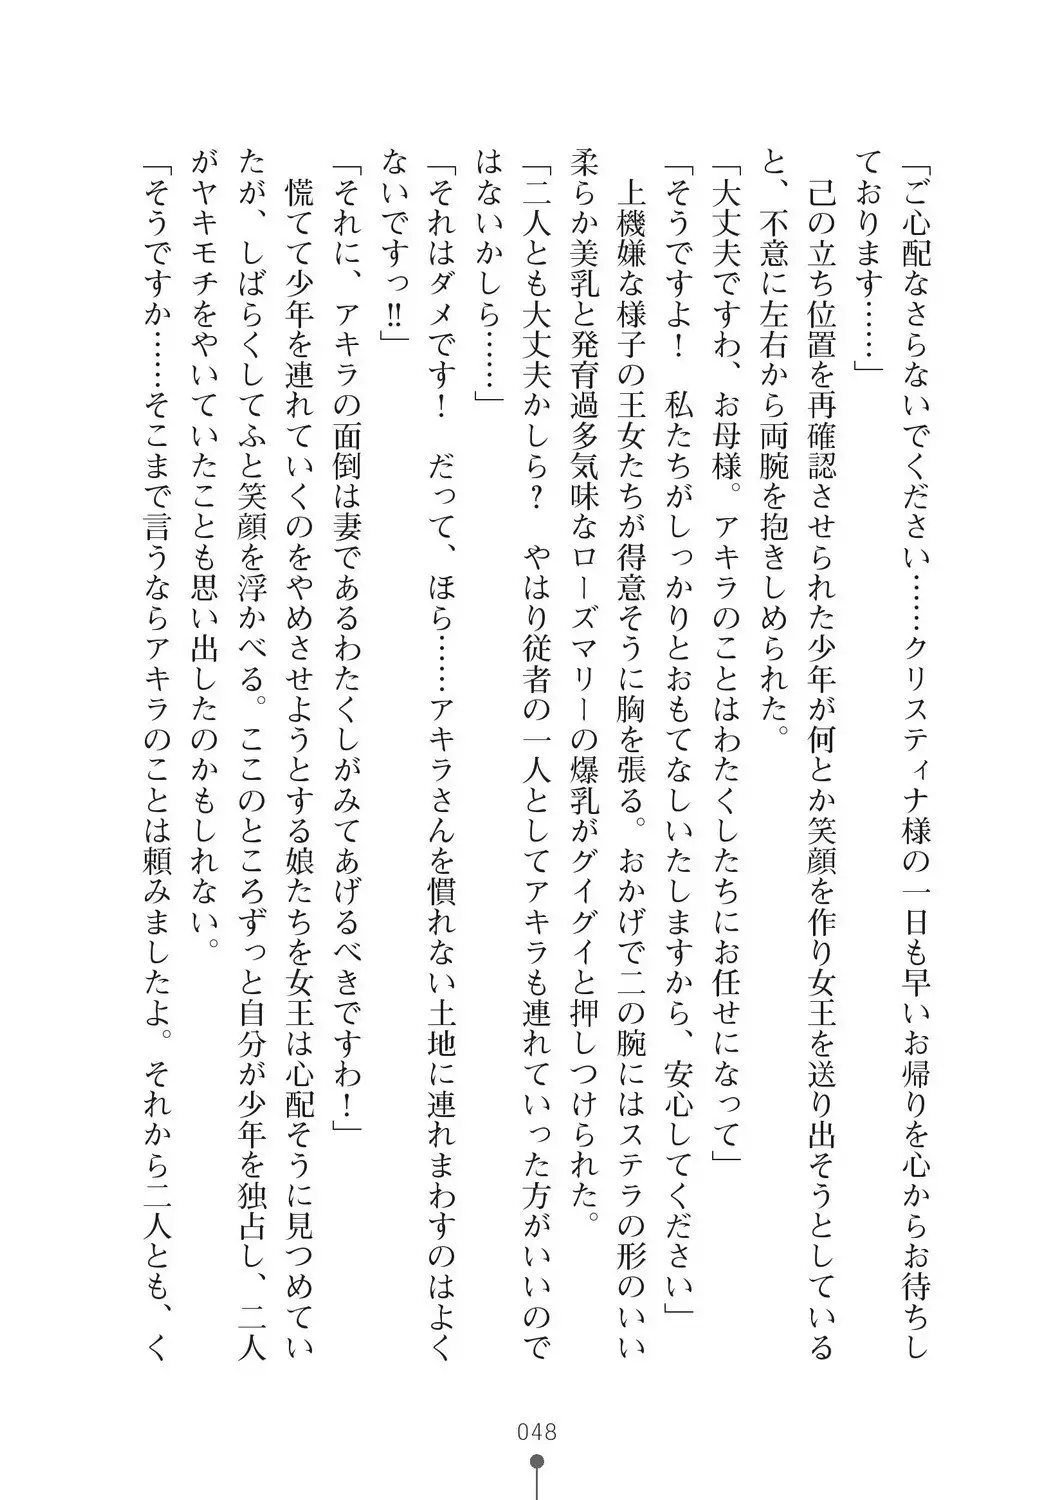 「ご心配なさらないでください……クリスティナ様の一日も早いお帰りを心からお待ちし
ております……」
　己の立ち位置を再確認させられた少年が何とか笑顔を作り女王を送り出そうとしている
と、不意に左右から両腕を抱きしめられた。
「大丈夫ですわ、お母様。アキラのことはわたくしたちにお任せになって」
「そうですよ！　私たちがしっかりとおもてなしいたしますから、安心してください」
　上機嫌な様子の王女たちが得意そうに胸を張る。おかげで二の腕にはステラの形のいい
柔らか美乳と発育過多気味なローズマリーの爆乳がグイグイと押しつけられた。
「二人とも大丈夫かしら？　やはり従者の一人としてアキラも連れていった方がいいので
はないかしら……」
「それはダメです！　だって、ほら……アキラさんを慣れない土地に連れまわすのはよく
ないですっ‼」
「それに、アキラの面倒は妻であるわたくしがみてあげるべきですわ！」
　慌てて少年を連れていくのをやめさせようとする娘たちを女王は心配そうに見つめてい
たが、しばらくしてふと笑顔を浮かべる。ここのところずっと自分が少年を独占し、二人
がヤキモチをやいていたことも思い出したのかもしれない。
「そうですか……そこまで言うならアキラのことは頼みましたよ。それから二人とも、く
048